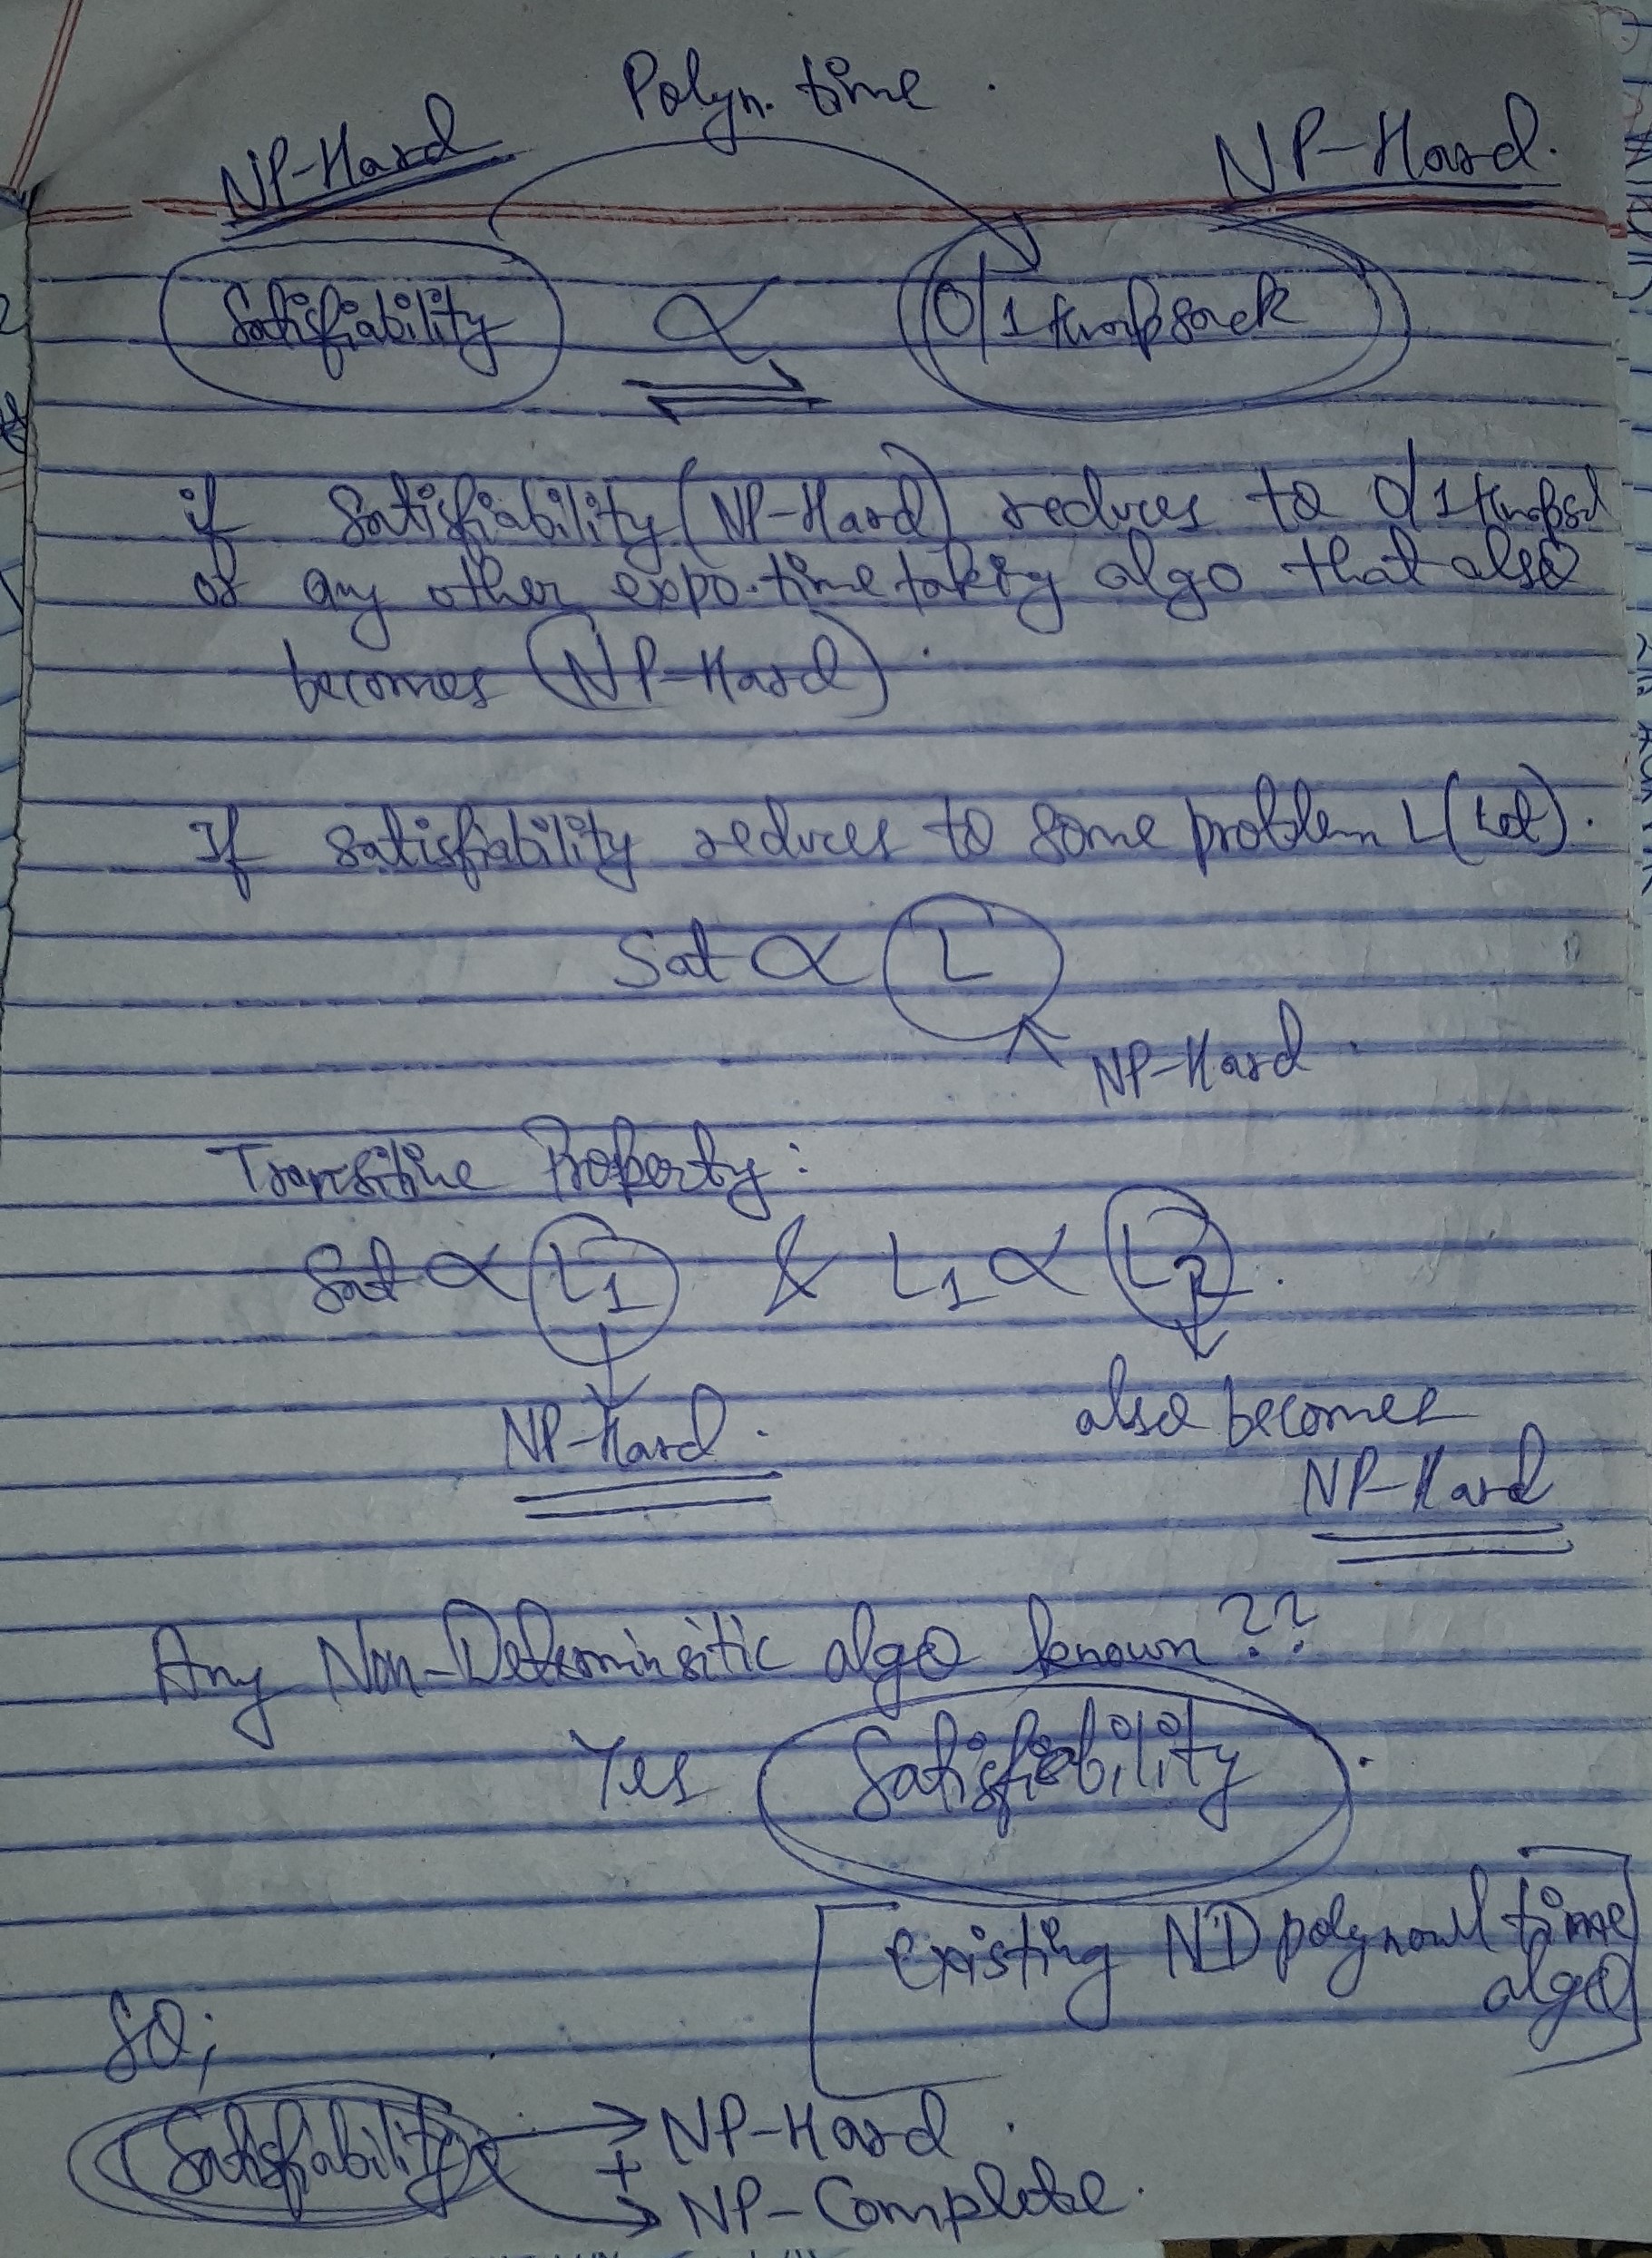 Polyn. time.
NP-Hard NP-Hard.
Satisfiability ∝ 0/1 knapsack
if Satisfiability (NP-Hard) reduces to 0/1
or any other expo. time taking algo that also
becomes (NP-Hard).
If satisfiability reduces to some problem L (let).
Sat ∝ L
NP-Hard.
Transitive Property:
Sat ∝ L1 & L1 ∝ L2.
NP-Hard. also becomes
NP-Hard
Any Non-Determinsitic algo known??
Yes Satisfiability.
Existing ND time
algo
SO;
Satisfiability → NP-Hard.
+
→ NP-Complete.